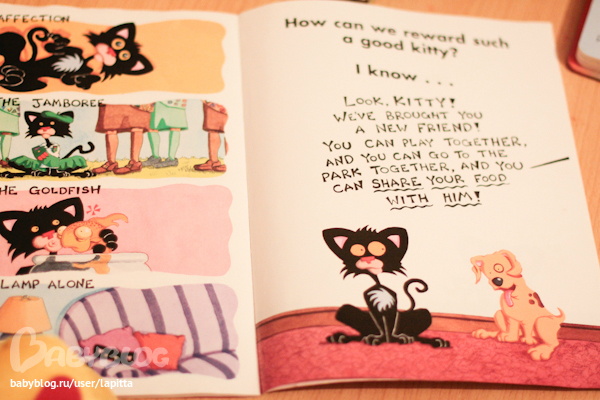 AFFECTION
THE JAMBOREE
THE GOLDFISH
LAMP ALONE
How can we reward such
a good kitty?
I know . . .
LOOK, KITTY!
WE'VE BROUGHT YOU
A NEW FRIEND!
YOU CAN PLAY TOGETHER,
AND YOU CAN GO TO THE
PARK TOGETHER, AND YOU
CAN SHARE YOUR FOOD
WITH HIM!
BABYBLOG
babyblog.ru/user/lapitta